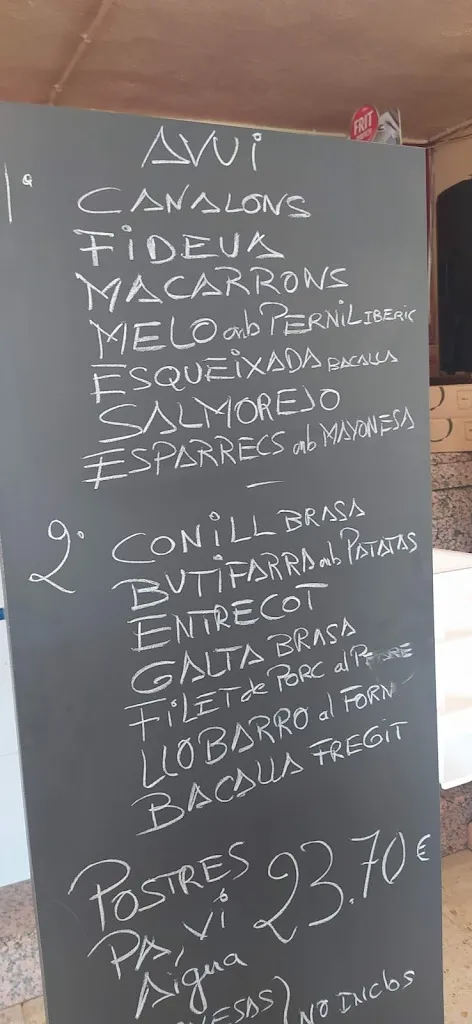 FRIT
AVUI
1º
CANALONS
FIDEUA
MACARRONS
MELO amb PERNIL IBERIC
ESQUEIXADA BACALLA
SALMOREJO
ESPARRECS amb MAYONESA
2º
CONILL BRASA
BUTIFARRA amb PATATAS
ENTRECOT
GALTA BRASA
FILET de PORC al
LLOBARRO al FORN
BACALLA FREGIT
POSTRES
PA, VI ó 23.70€
Aigua
NO INCLOS